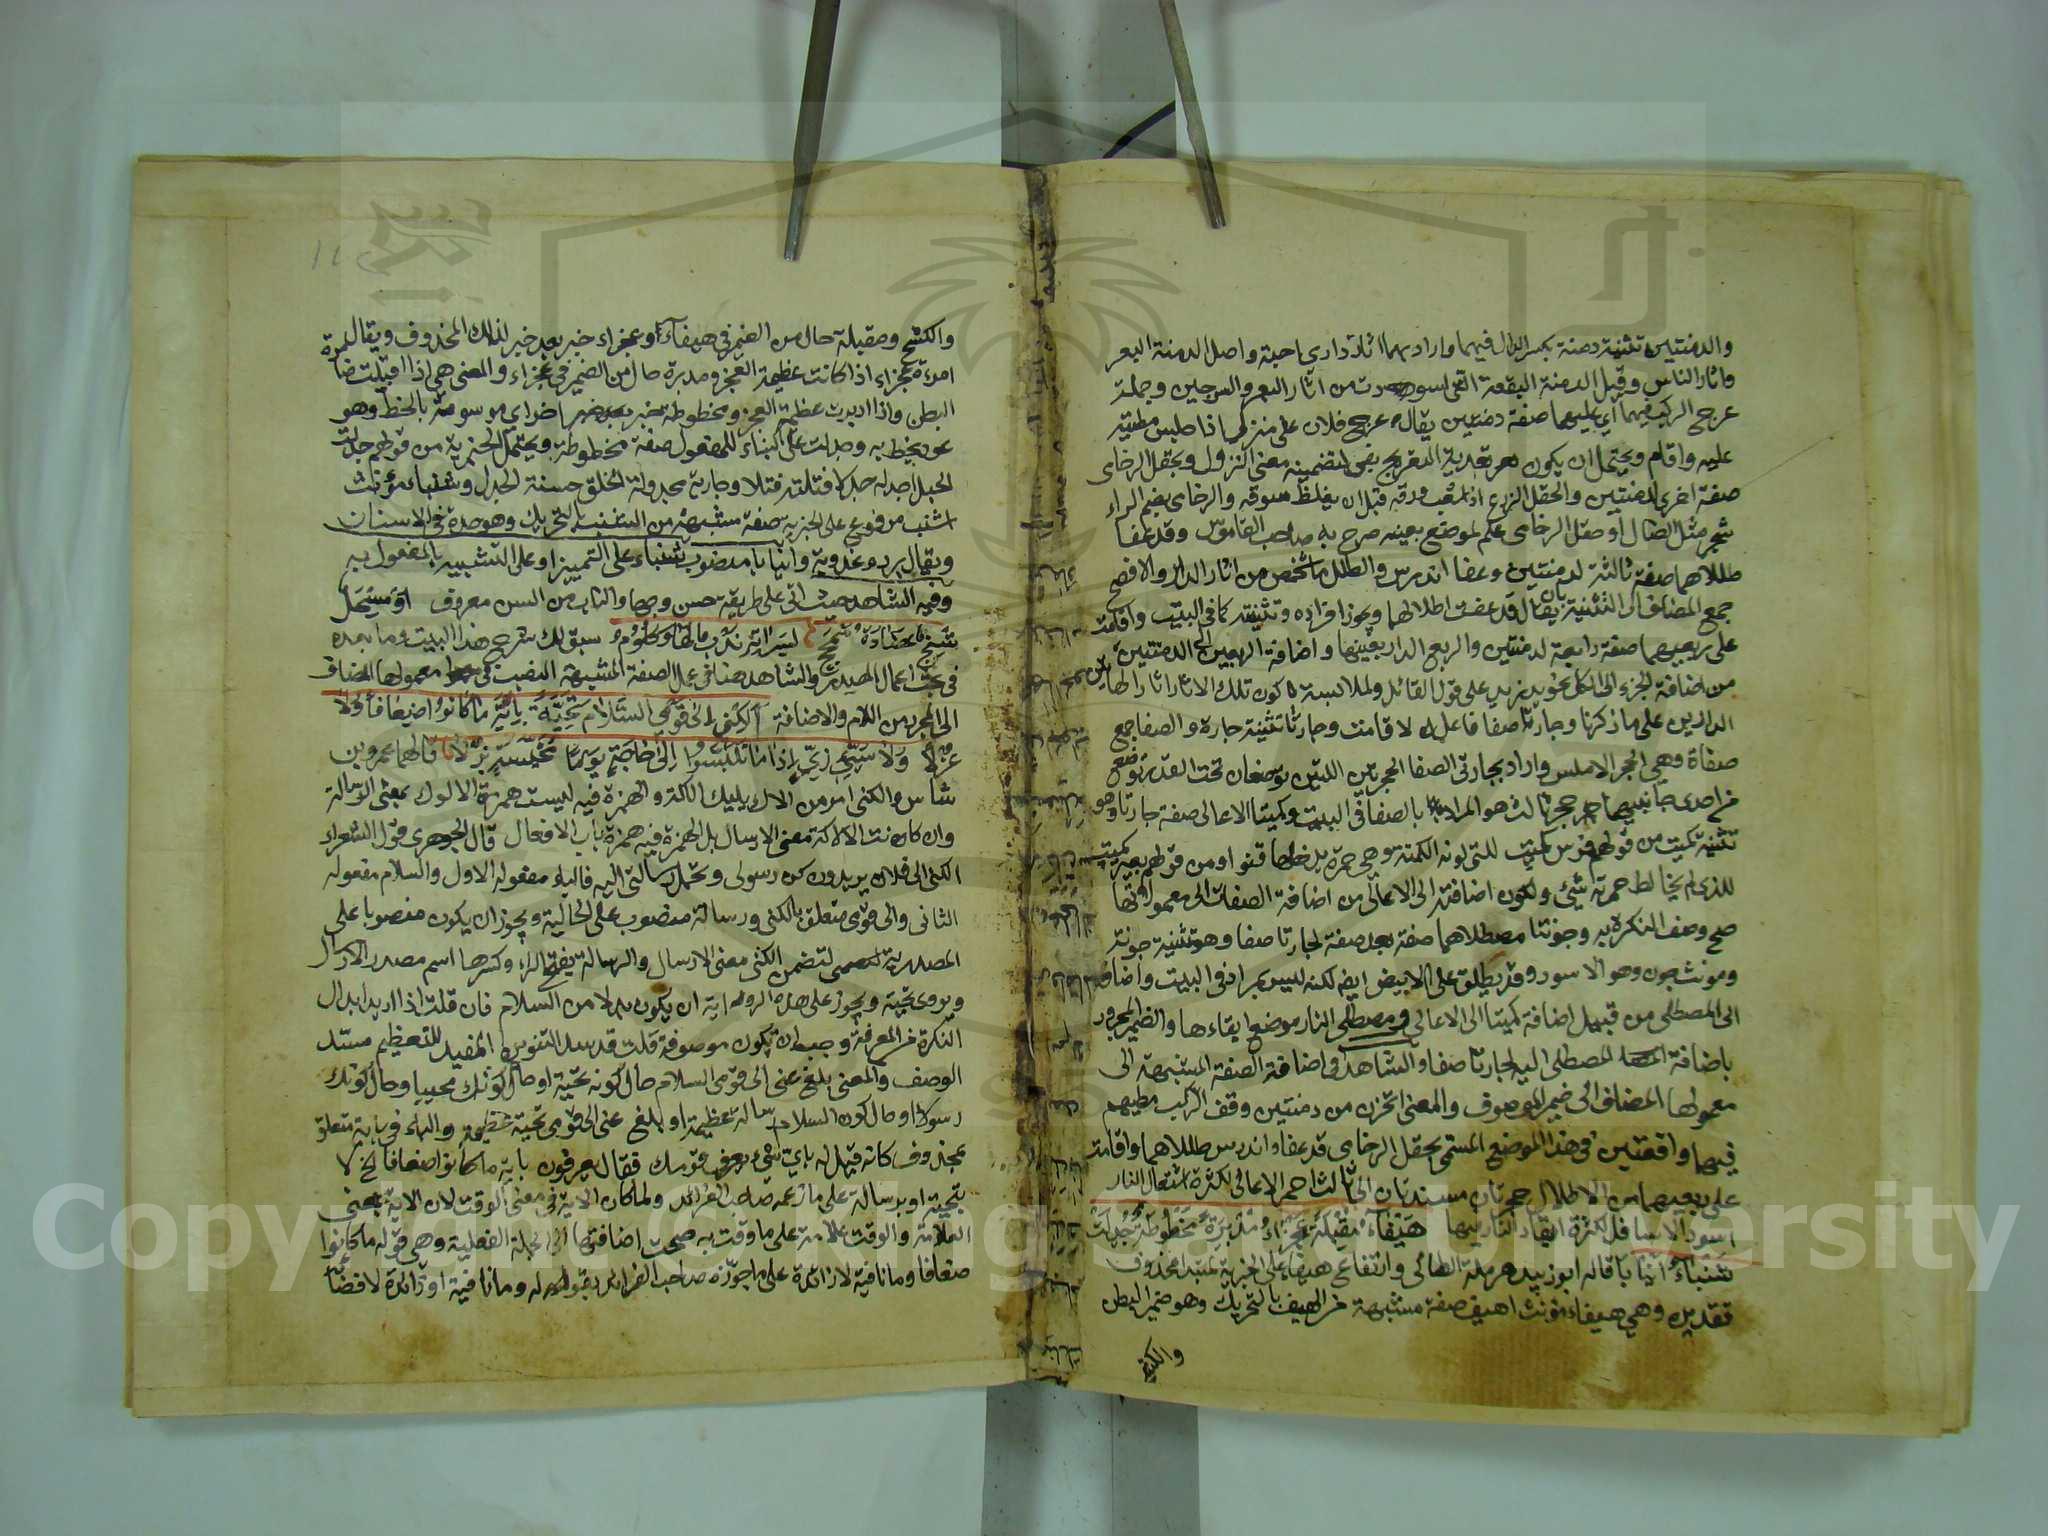 والدمنتين تثنية دمنة بكسر الدال فيهما واراد بهما اثار داري احبة واصل الدمنة البعر
واثار الناس وقيل الدمنة البقعة التي اسودت من اثار البعر والسرجين وجملة
عرج الركب فيهما اي عليهما صفة دمنتين يقال عرج فلان على منزل اذا حبس مطيته
عليه واقام ويحتمل ان يكون تعدية التعريج بفي لتضمينه معنى النزول وبحقل الرخامى
صفة اخرى لدمنتين والحقل الزرع اذا تشعب ورقه قبل ان يغلظ سوقه والرخامى بضم الراء
شجر مثل الضال او حقل الرخامى علم لموضع بعينه صرح به صاحب القاموس وقد عفا
طللاهما صفة ثالثة لدمنتين وعفا اندرس والطلل ما شخص من اثار الدار والافصح
جمع المضاف الى التثنية بان يقال قد عفت اطلالهما ويجوز افراده وتثنيته كما في البيت واقامت
على ربعيهما صفة رابعة لدمنتين والربع الدار بعينها واضافة الربعين الى الدمنتين
من اضافة الجزء الى الكل نحو يد زيد على قول القائل ولملابسة كون تلك الاثار اثارا لهاتين
الدارين على ما ذكرنا وجارتا صفا فاعل لا قامت وجارتا تثنية جارة والصفا جمع
صفاة وهي الحجر الاملس واراد بجارتي الصفا الحجرين اللذين توضعان تحت القدر توضع
من احدى جانبيهما حجر ثالث هو المراد بالصفا في البيت وكميتا الاعالي صفة جارتا وهو
تثنية كميت من قولهم فرس كميت للتي لونه الكمتة وهي حمرة يدخلها قنوء او من قولهم بعير كميت
للذي لم يخالط حمرته شيئ ولكون اضافته الى الاعالي من اضافة الصفات الى معمولاتها
صح وصف النكرة به وجونتا مصطلاهما صفة بعد صفة لجارتا صفا وهو تثنية جونة
ومونث جون وهو الاسود وقد يطلق على الابيض ايضا لكنه ليس بمراد في البيت واضافته
الى المصطلى من قبيل اضافة كميتا الى الاعالي ومصطلى النار موضع ايقاءها والضمير المجرور
باضافة المصطلى اليه لجارتا صفا والشاهد في اضافة الصفة المشبهة الى
معمولها المضاف الى ضمير الموصوف والمعنى اتحزن من دمنتين وقف الركب مطيهم
فيهما واقفتين في هذا الموضع المسمى بحقل الرخامى قد عفا واندرس طللاهما واقامت
على ربعيهما من الاطلال حجرتان مسندتان الى ثالث احمر الاعالي لكثرة اشتعال النار
اسود الاسافل لكثرة ايقاد النار بينها هَيْفَاءُ مُقْبِلَةً عَجْزَاءُ مُدْبِرَةً مَخْطُوطَةٌ جُدِلَتْ
شَنْبَاءُ انيابا قاله ابو زبيد حرملة الطائي وانتفاع هيفاء على الخبرية لمبتدا محذوف
تقديره وهي هيفاء مؤنث اهيف صفة مشبهة من الهيف بالتحريك وهو ضمر البطن
والكشح
والكشح ومقبلة حال من الضمير في هيفاء وعجزاء خبر بعد خبر لذلك المحذوف ويقال لمرة
امرءة عجزاء اذا كانت عظيمة العجز ومدبرة حال من الضمير في عجزاء والمعنى هي اذا اقبلت ضامرة
البطن واذا ادبرت عظيم العجز ومخطوطة خبر بعد خبر اخر اي موسومة بالخط وهو
عود يخط به وجدلت على البناء للمفعول صفة مخطوطة ويحتمل الخبرية من قولهم جدلت
الحبل اجدله جدلا فتلته فتلا وجارية مجدولة الخلق حسنة الجدل وشنباء مؤنث
اشنب مرفوع على الخبرية صفة مشبهة من الشنب بالتحريك وهو حدة في الاسنان
ويقال برد وعذوبة وانيابا منصوب شنباء على التمييز او على التشبيه بالمفعول به
وفيه الشاهد حيث اتى على طريقة حسن وجها والناب من السن معروف اومسحل
شنج عضادة سمحج بسراته ندب لها وكلوم سبق لك شرح هذا البيت وما بعده
في بحث اعمال المصدر والشاهد هنا في عمل الصفة المشبهة النصب في معمولها المضاف
الى المجرد من اللام والاضافة اَلِكْنِي اِلَى قَوْمِي السَّلَامَ تَحِيَّةً بِاٰيَةِ مَا كَانُوا اضِعَافًا وَلَا
عُزْلًا وَلَا سَيِّئِي زِيٍّ اِذَا مَا تَلَبَّسُوا اِلَى حَاجَةٍ يَوْمًا مُخَيَّسَةً بُزْلًا قالهما عمرو بن
شاس والكني امر من الاك يليك الاكة والهمزة فيه ليست همزة الالوك بمعنى الرسالة
وان كانت الالاكة معنى الارسال بل الهمزة فيه همزة باب الافعال قال الجوهري قول الشعراء
الكني الى فلان يريدون كن رسولي وتحمل رسالتي اليه فالياء مفعوله الاول والسلام مفعوله
الثاني والى قومي متعلق بالكني ورسالة منصوب على الحالية ويجوز ان يكون منصوبا على
المصدرية لتضمن الكني معنى الارسال والرسالة بفتح الراء وكسرها اسم مصدر الارسال
ويروى تحية ويجوز على هذه الرواية ان يكون بدلا من السلام فان قلت اذا اريد ابدال
النكرة من المعرفة وجب ان تكون موصوفة قلت قد سد التنوين المفيد للتعظيم مسد
الوصف والمعنى بلغ عني الى قومي السلام حال كونه تحية او حال كونك محييا وحال كونك
رسولا او حال كون السلام رسالة عظيمة او بلغ عني الى قومي تحية عظيمة والباء في باية متعلق
بمحذوف كانه قيل له باي شيء يعرف قومك فقال يعرفون باية ما كانوا ضعافا الخ لا
بتحية او برسالة على ما زعمه صاحب الفرائد ولما كان الاية في معنى الوقت لان الاية بمعنى
العلامة والوقت علامة على ما وقت به صحت اضافتها الى الجملة الفعلية وهي قوله ما كانوا
ضعافا وما نافية لا زائدة على ما جوزه صاحب الفرائد بقوله وما نافية او زائدة لا فضا
Copyright © King Saud University